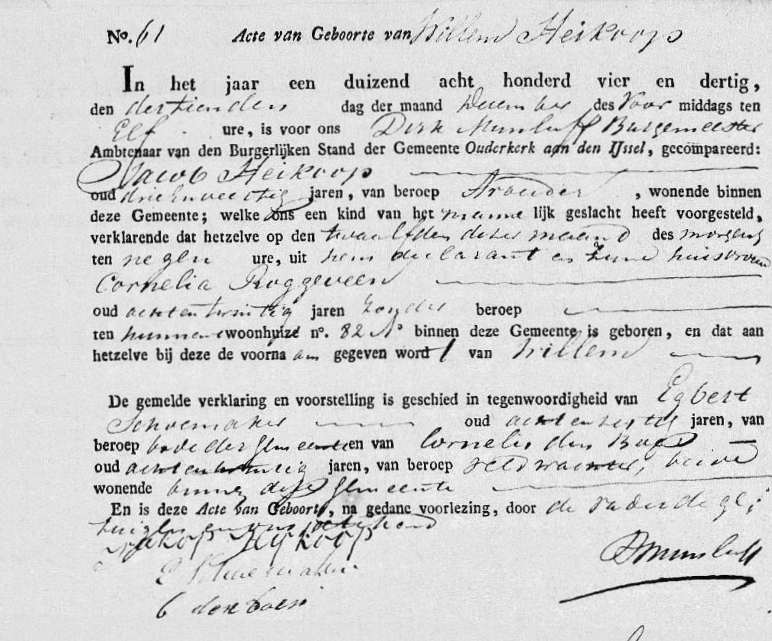 No. 61 Acte van Geboorte van Willem Heikoop
In het jaar een duizend acht honderd vier en dertig,
den dertienden dag der maand December des Voor middags ten
Elf ure, is voor ons Dirk Burgemeester
Ambtenaar van den Burgerlijken Stand der Gemeente Ouderkerk aan den IJssel, gecompareerd:
Jacob Heikoop
oud drieenveertig jaren, van beroep , wonende binnen
deze Gemeente; welke ons een kind van het manne lijk geslacht heeft voorgesteld,
verklarende dat hetzelve op den twaalfden dezer maand des morgens
ten negen ure, uit hem declarant en zijne huisvrouw
Cornelia Roggeveen
oud achtentwintig jaren zonder beroep
ten hunnen woonhuize no. 82 binnen deze Gemeente is geboren, en dat aan
hetzelve bij deze de voorna am gegeven wordt van Willem
De gemelde verklaring en voorstelling is geschied in tegenwoordigheid van Egbert
Schoemaker oud jaren, van
beroep bode der Gemeente en van Cornelis den Boer
oud achtentwintig jaren, van beroep veldwachter, beide
wonende binnen deze Gemeente
En is deze Acte van Geboorte, na gedane voorlezing, door de vader de ge,
tuigen en ons
Jakop Heijkoop
E Schoemaker
C den boer